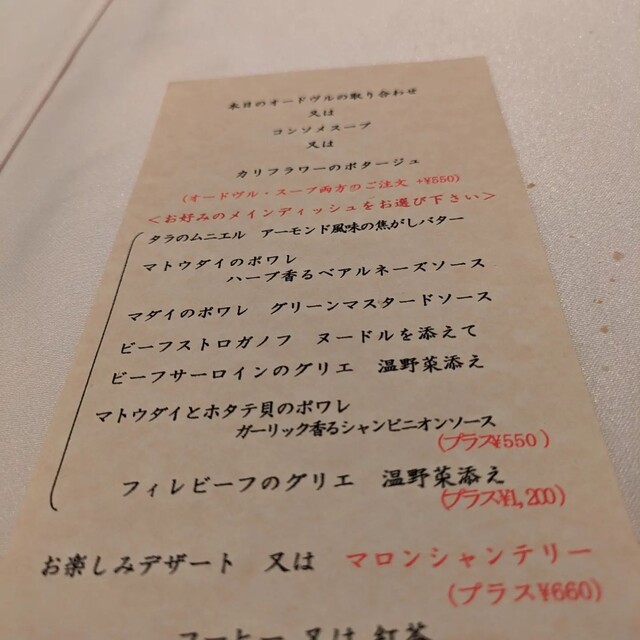 本日のオードヴルの取り合わせ
又は
コンソメスープ
又は
カリフラワーのポタージュ
(オードヴル・スープ両方のご注文 +¥550)
<お好みのメインディッシュをお選び下さい>
タラのムニエル アーモンド風味の焦がしバター
マトウダイのポワレ
ハーブ香るベアルネーズソース
マダイのポワレ グリーンマスタードソース
ビーフストロガノフ ヌードルを添えて
ビーフサーロインのグリエ 温野菜添え
マトウダイとホタテ貝のポワレ
ガーリック香るシャンピニオンソース
(プラス¥550)
フィレビーフのグリエ 温野菜添え
(プラス¥1,200)
お楽しみデザート 又は マロンシャンテリー
(プラス¥660)
コーヒー 又は 紅茶